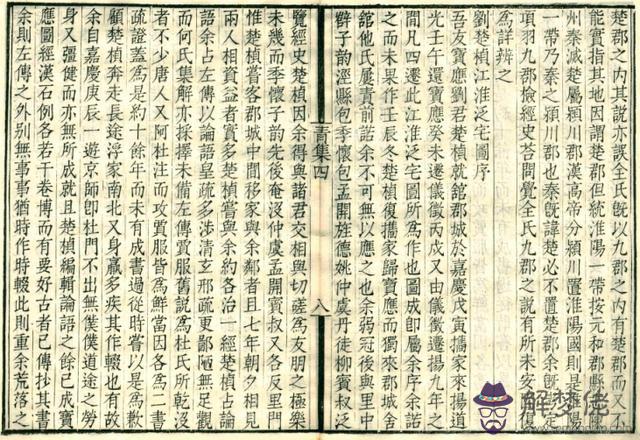 楚郡之內其說亦誤全氏旣以九郡之內無楚郡而又不
能實指其地因謂楚郡但統淮陽一帶按元和郡縣志陳
州秦滅楚屬潁川郡漢高帝分潁川置淮陽國則是淮陽
一帶乃秦之潁川郡也秦旣諱楚必不置楚郡余旣更定
項羽九郡檢經史荅問覺全氏九郡之說有所未安因復
爲詳辨之
劉楚楨江淮泛宅圖序
吾友寶應劉君楚楨就館郡城於嘉慶戊寅攜家來揚道
光壬午還寶應癸未遷儀徵丙戌又由儀徵遷揚九年之
間凡四遷此江淮泛宅圖所爲作也圖成卽屬余序余諾
之而未果作壬辰冬楚楨復攜家歸寶應而獨來郡城舍
館他氏屢責前諾余不可無以應之也余弱冠後與里中
薛子韵涇縣包季懷包孟開旌德姚仲虞丹徒柳賓叔泛
覽經史楚楨因余得與諸君交相與切磋爲友朋之極樂
未幾而季懷子韵先後奄沒仲虞孟開賓叔又各反里門
惟楚楨嘗客郡城中間移家與余鄰者且七年朝夕相見
兩人相資益者實多楚楨嘗與余約各治一經楚楨占論
語余占左傳以論語皇疏多涉清玄邢疏更鄙陋無足觀
而何氏集解亦採擇未備左傳賈服舊說爲杜氏所乾沒
者不少唐人又阿杜注而攻賈服皆爲鮮當因各爲二書
疏證蓋爲是約十餘年而未有成書過從時嘗以是爲歉
顧楚楨奔走長途浮家南北又身羸多疾其作輟也有故
余自嘉慶庚辰一遊京師卽杜門不出無僕僕道途之勞
身又彊健而亦無所成就且楚楨編輯論語之餘已成寶
應圖經漢石例各若干卷博而有要好古者已傳抄其書
余則左傳之外別無事事猶時作時輟此則重余荒落之
青集四
八
解梦佬